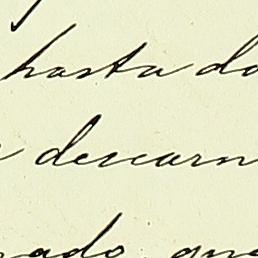 hasta do
descarn
rado, que